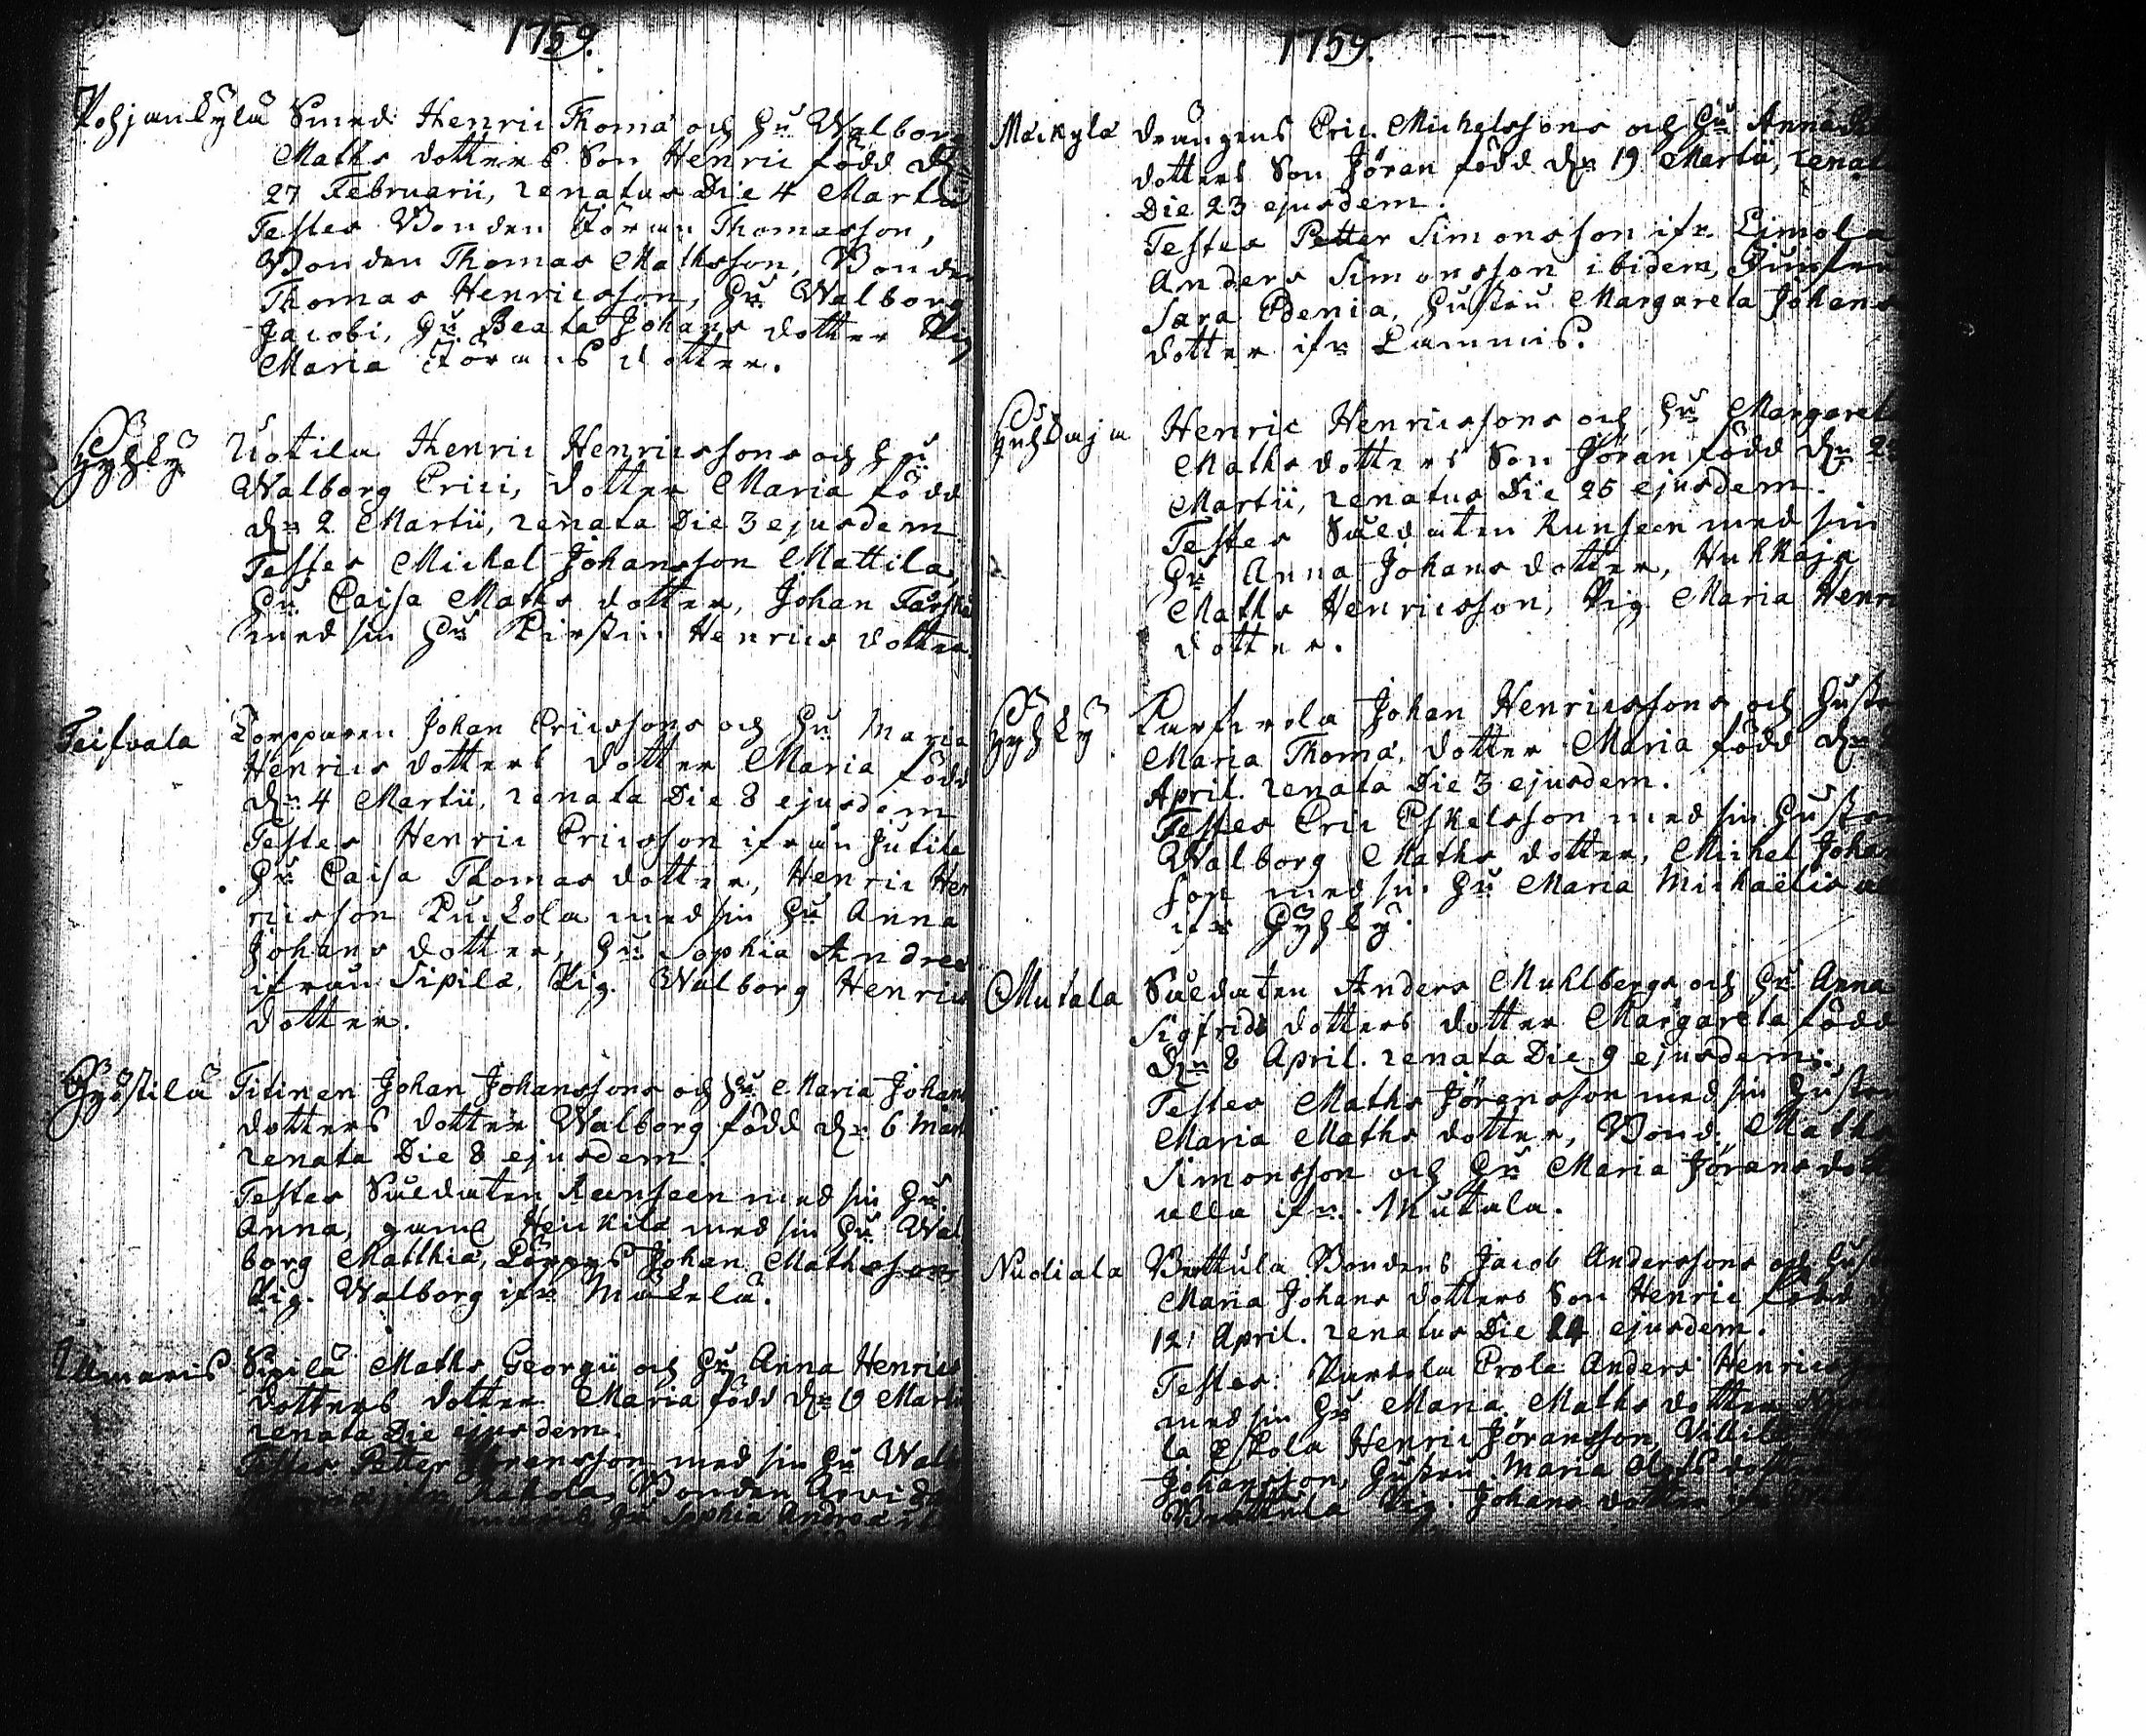 1759.
Pohjankylä Smed Henric Thomæ och Hu Walborg
Maths dotters Son Henric född dn
27 Februarii, renatus Die 4 Martii
Testes Bonden Jöran Thomasson,
Bonden Thomas Mathsson, Bonden
Thomas Henricsson, Hu Walborg
Jacobi, Hu Beata Johans dotter Pig
Maria Jörans dotter.
Hyhky Uotila Henric Henricssons och Hu
Walborg Erici, dotter Maria född
dn 2 Martii, renata Die 3 ejusdem
Testes Michel Johansson Mattila,
Hu Caisa Maths dotter, Johan
med sin Hu Kirstin Henrics dotter.
Teifvala Torpparen Johan Ericssons och Hu Maria
Henrics dotters dotter Maria född
dn 4 Martii, renata Die 8 ejusdem
Testes Henric Ericsson ifrån
Hu Caisa Thomas dotter, Henric Hen
ricsson med sin Hu Anna
Johans dotter, Hu Sophia Andreæ
ifrån Sipilä, Pig. Walborg Henrics
dotter.
Hyöstilä Titinen Johan Johanssons och Hu Maria Johans
dotters dotter Walborg född dn 6 Mart
renata Die 8 ejusdem.
Testes Sueldaten Runseen med sin Hu
Anna, gaml Heickilä med sin Hu Wal
borg Matthiæ, Johan Mathsson
Pig. Walborg ifn Mäkelä.
Ulmaris Sipilä Maths Georgii och Hu Anna Henrics
dotters dotter Maria född dn Martii
renata Die ejusdem.
Testes Petter Jöransson med sin Hu Walb
Bonden Arvid
Hu Sophia Andreæ
1759.
Mäckylä drängens Eric Michelssons och Hu Anna
dotters Son Jöran född dn 19 Martii, renatus
Die 23 ejusdem.
Testes Petter Simonsson ifn Limola
Anders Simonsson ibidem, Jungfru
Sara Edenia, Hustru Margareta Johans
dotter ifn Lammis.
Huhkaja Henric Henricssons och Hu Margareta
Maths dotters Son Jöran född dn 2
Martii, renatus Die 25 ejusdem.
Testes Sueldaten Runseen med sin
Hu Anna Johans dotter, Huhkaja
Maths Henricsson, Pig Maria Henrics
dotter.
Hyhky Johan Henricssons och Hustru
Maria Thomæ, dotter Maria född dn
April. renata Die 3 ejusdem.
Testes Eric Eskelsson med sin Hustru
Walborg Maths dotter, Michel Johans
son med sin Hu Maria Michaëlis alla
ifn Hyhky.
Mutala Sueldaten Anders Muhlbergs och Hu Anna
Sigfrids dotters dotter Margareta född
dn 8 April. renata Die 9 ejusdem.
Testes Maths Jöransson med sin Hustru
Maria Maths dotter, Bond. Maths
Simonsson och Hu Maria Jörans dotter
alla ifn. Mutala.
Nuoliala Bondens Jacob Anderssons och Hustru
Maria Johans dotters Son Henric född
12 April. renatus Die 14 ejusdem.
Testes: Anders Henricsson
med sin Hu Maria Maths dotter
la Eskola Henric Jöransson,
Johansson, Hustru Maria
Pig. Johans dotter ifn